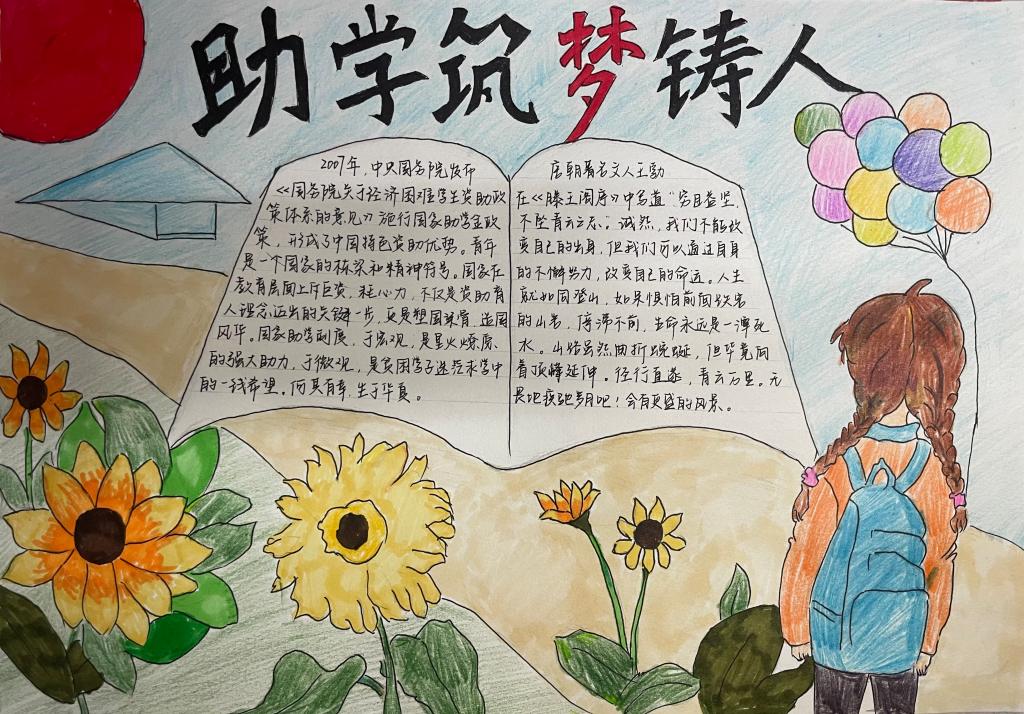 助学筑梦铸人
2007年,中央国务院发布
《国务院关于经济困难学生资助政
策体系的意见》施行国家助学金政
策,形成了中国特色资助优势。青年
是一个国家的栋梁和精神符号。国家在
教育层面上斥巨资,耗心力,不仅是资助育
人理念迈出的关键一步,更是塑国脊骨,造国
风华。国家助学制度,于宏观,是星火燎原
的强大助力,于微观,是贫困学子迷茫求学中
的一线希望。何其有幸,生于华夏。
唐朝著名文人王勃
在《滕王阁序》中写道“穷且益坚,
不坠青云之志。”诚然,我们不能改
变自己的出身,但我们可以通过自身
的不懈努力,改变自己的命运。人生
就如同登山,如果惧怕前面
的山岩,停滞不前,生命永远是一潭死
水。山路虽然曲折蜿蜒,但毕竟向
着顶峰延伸。径行直遂,青云万里。无
畏地疾驰岁月吧!会有更盛的风景。